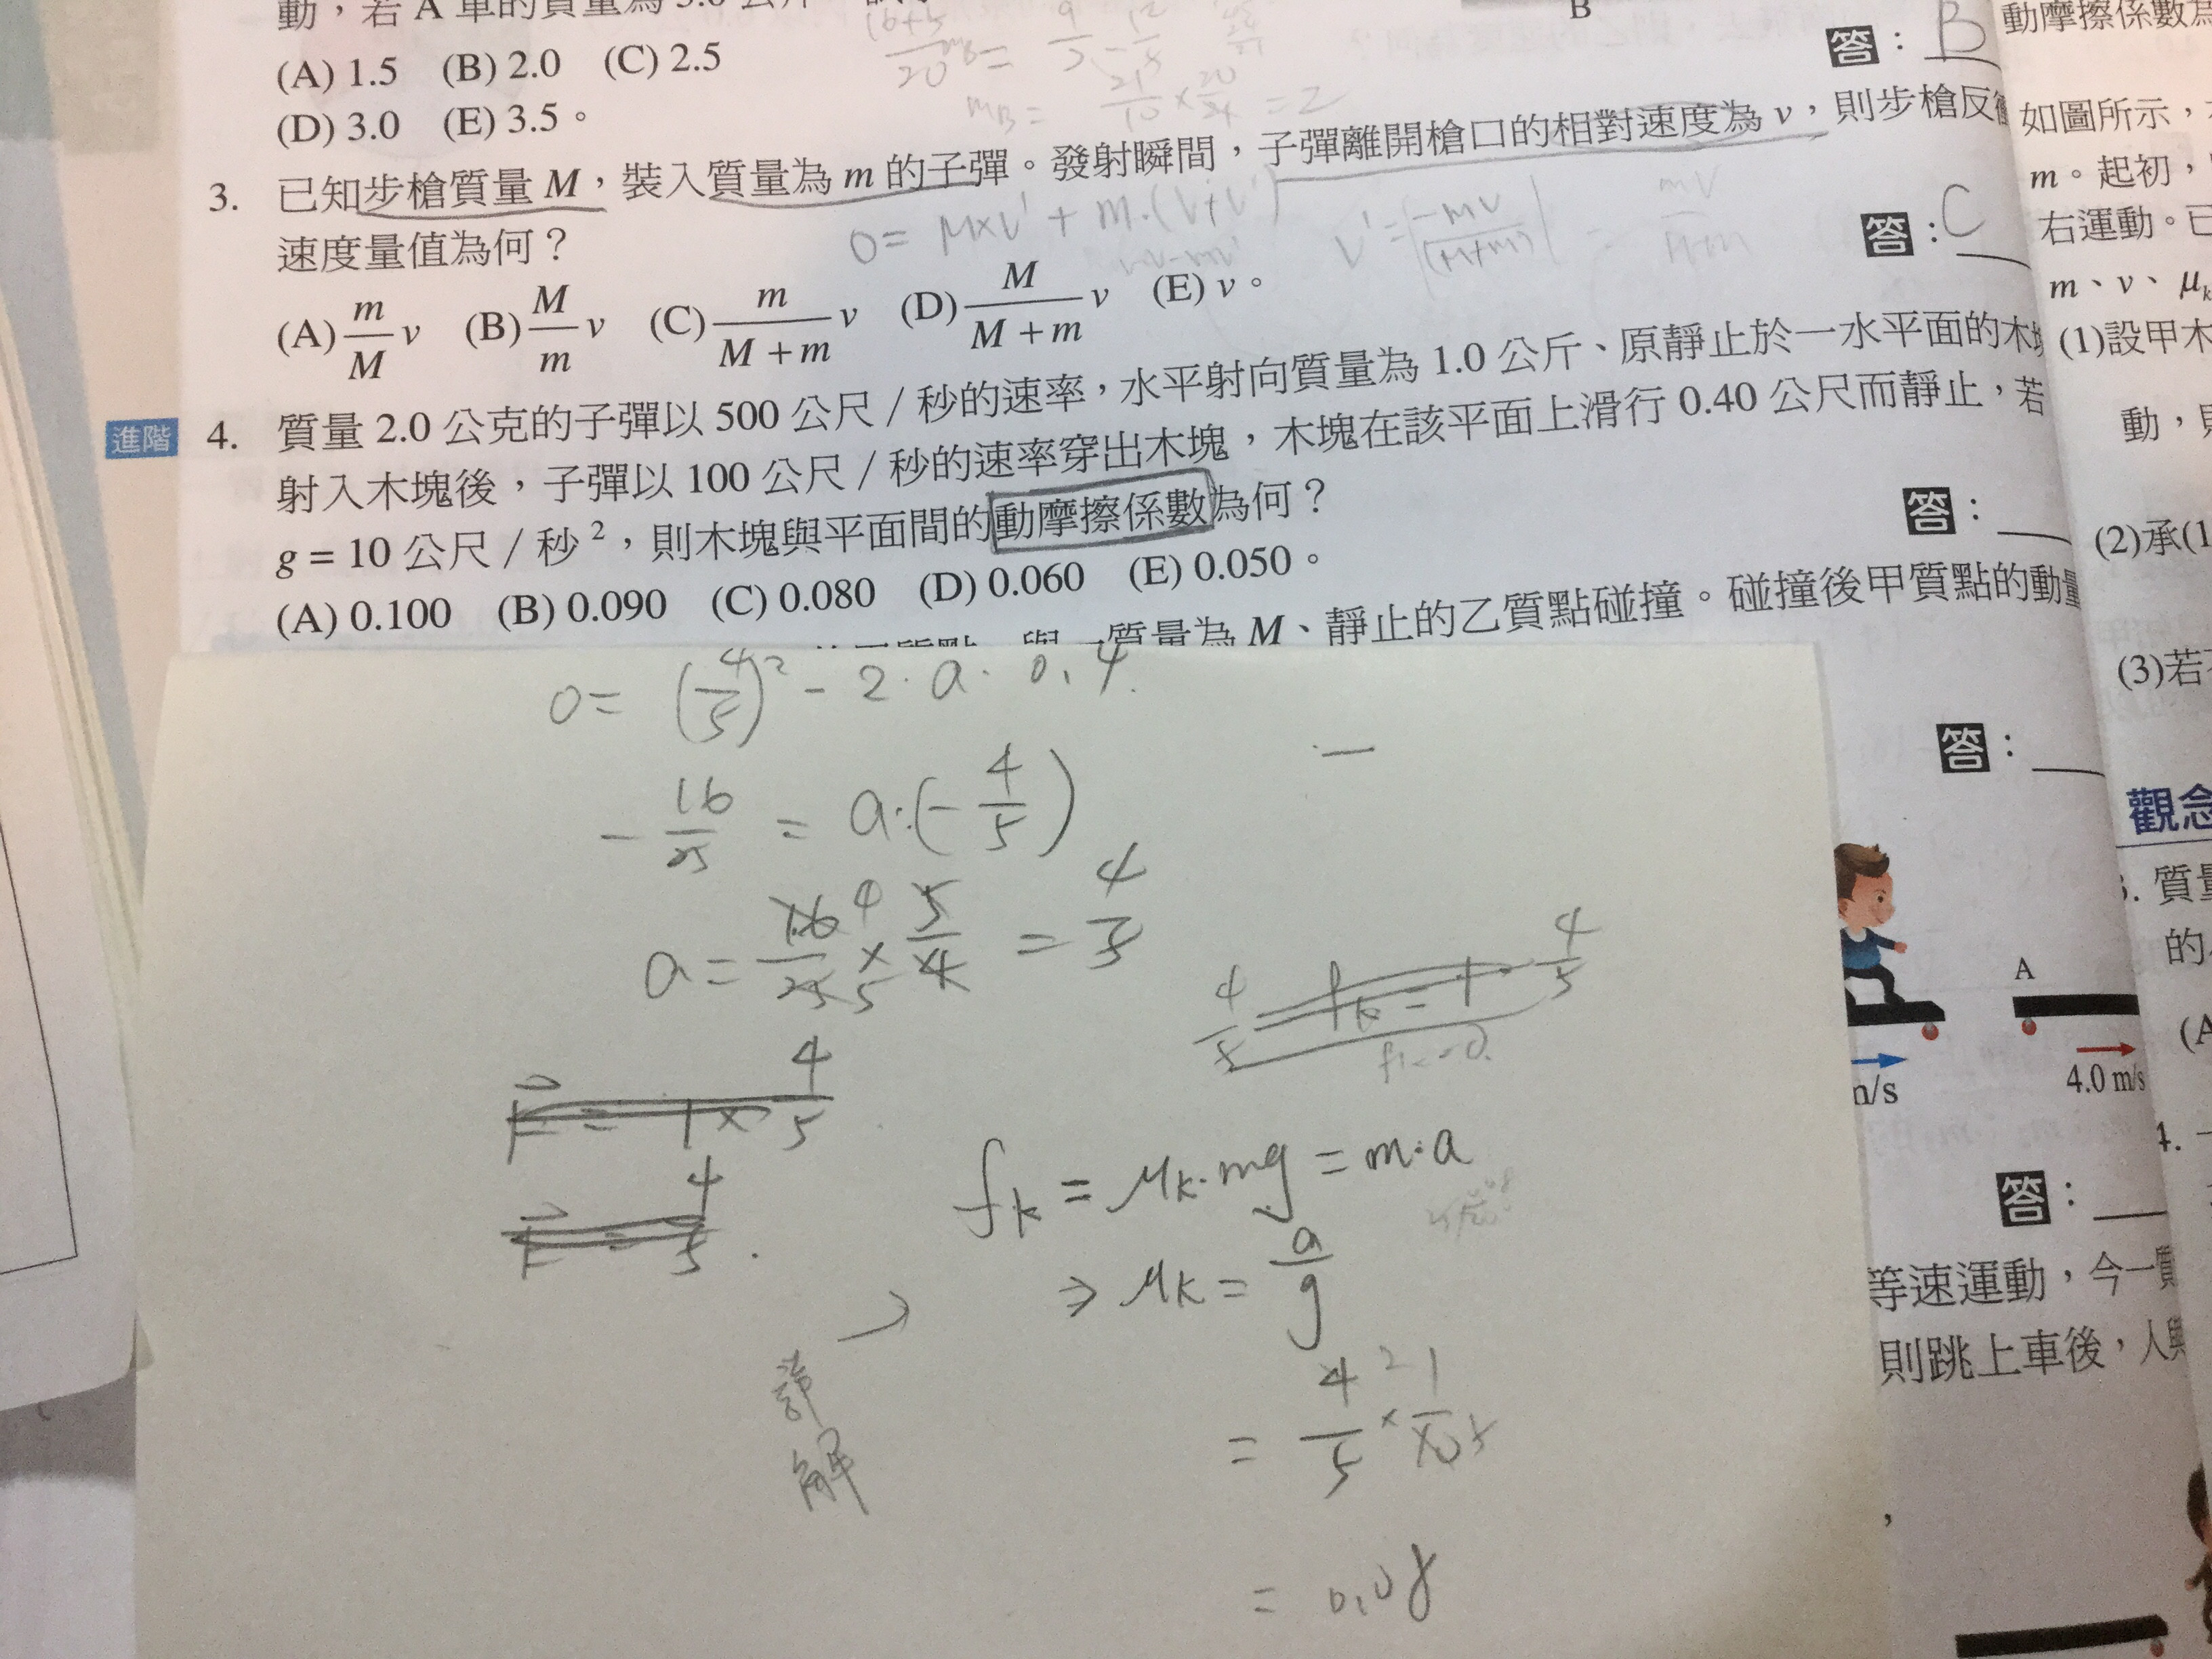 動，若 A 車的質量為 3.0 公斤
(A) 1.5 (B) 2.0 (C) 2.5
(D) 3.0 (E) 3.5。
B
答：B
3. 已知步槍質量 M，裝入質量為 m 的子彈。發射瞬間，子彈離開槍口的相對速度為 v，則步槍反
速度量值為何？
0 = M×V' + m·(V+V')
答：C
(A) m/M v (B) M/m v (C) m/(M+m) v (D) M/(M+m) v (E) v。
進階 4. 質量 2.0 公克的子彈以 500 公尺／秒的速率，水平射向質量為 1.0 公斤、原靜止於一水平面的木塊
射入木塊後，子彈以 100 公尺／秒的速率穿出木塊，木塊在該平面上滑行 0.40 公尺而靜止，若
g = 10 公尺／秒²，則木塊與平面間的動摩擦係數為何？
答：
(A) 0.100 (B) 0.090 (C) 0.080 (D) 0.060 (E) 0.050。
質量為 M、靜止的乙質點碰撞。碰撞後甲質點的動量
答：
0 = (4/5)² - 2·a·0.4
-16/25 = a·(-4/5)
a = 16/25 × 5/4 = 4/5
fk = μk·mg = m·a
⇒ μk = a/g
詳解
= 4/5 × 1/10
= 0.08
m/s
答：
等速運動，今一質
則跳上車後，人與
動摩擦係數為
如圖所示，
m。起初，
右運動。已
m、v、μk
(1)設甲木
動，則
(2)承(1
(3)若
觀念
3. 質量
的
A
(A
4.0 m/s
4.